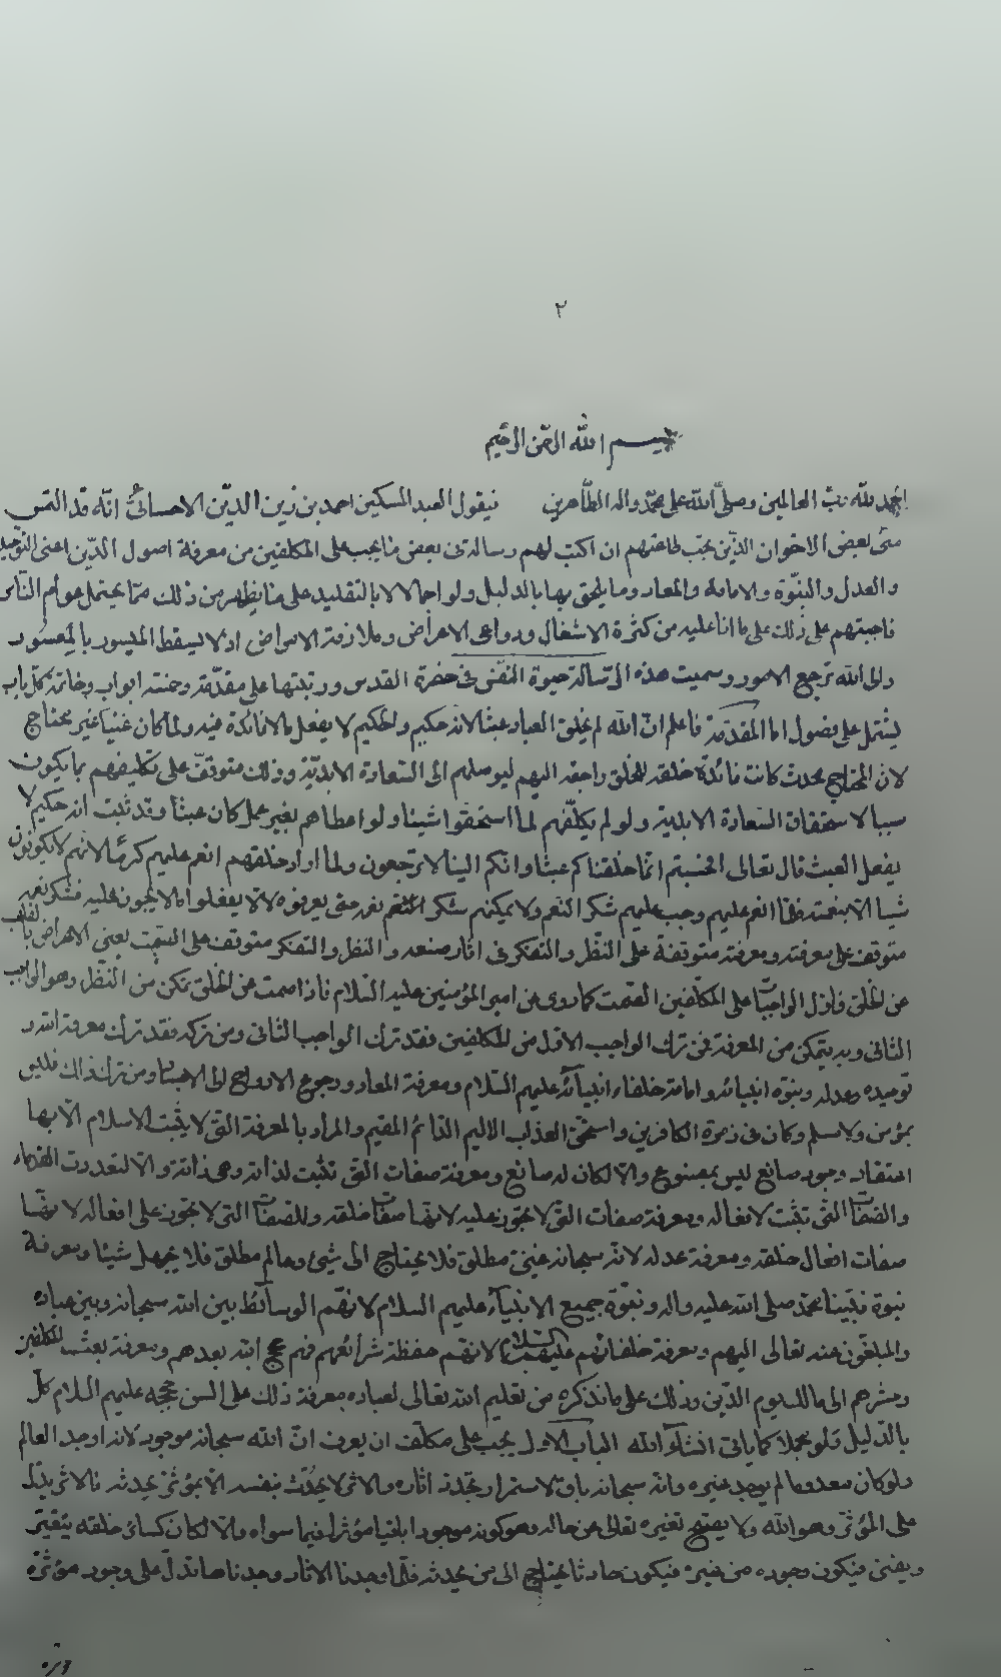 ٢
بسم الله الرحمن الرحيم
الحمد لله رب العالمين وصلى الله على محمد واله الطاهرين فيقول العبد المسكين احمد بن زين الدين الاحسائي انه قد التمس
منى بعض الاخوان الذين يجب طاعتهم ان اكتب لهم رسالة فى بعض ما يجب على المكلفين من معرفة اصول الدين اعنى التوحيد
والعدل والنبوة والامامة والمعاد وما يلحق بها بالدليل ولو اجمالا لا بالتقليد على ما يظهر من ذلك مما يحتمل عوام الناس
فاجبتهم على ذلك على ما انا عليه من كثرة الاشغال ودواعى الاعراض وملازمة الامراض اذ لا يسقط الميسور بالمعسور
والى الله ترجع الامور وسميت هذه الرسالة حيوة النفس فى حضرة القدس ورتبتها على مقدمة وخمسة ابواب وخاتمة كل باب
يشتمل على فصول اما المقدمة فاعلم ان الله لم يخلق العباد عبثا لانه حكيم والحكيم لا يفعل ما لا فائدة فيه ولما كان غنيا غير محتاج
لان المحتاج محدث كانت فائدة خلقه للخلق راجعة اليهم ليوصلهم الى السعادة الابدية وذلك متوقف على تكليفهم بما يكون
سببا لاستحقاق السعادة الابدية ولو لم يكلفهم لما استحقوا شيئا ولو اعطاهم بغير عمل كان عبثا وقد ثبت انه حكيم لا
يفعل العبث قال تعالى افحسبتم انما خلقناكم عبثا وانكم الينا لا ترجعون ولما اراد خلقهم انعم عليهم كرما لانهم لا يكونون
شيئا الا بنعمته فلما انعم عليهم وجب عليهم شكر النعم ولا يمكنهم شكر النعم حتى يعرفوه لئلا يفعلوا ما لا يجوز عليه فشكر نعمه
متوقف على معرفته ومعرفته متوقفة على النظر والتفكر فى اثار صنعه والنظر والتفكر متوقف على الصمت يعنى الاعراض بالقلب
عن الخلق فاول الواجبات على المكلفين الصمت كما روى عن امير المؤمنين عليه السلام فاذا صمت عن الخلق تمكن من النظر وهو الواجب
الثانى وبه يتمكن من المعرفة فمن ترك الواجب الاول من المكلفين فقد ترك الواجب الثانى ومن تركه فقد ترك معرفة الله و
توحيده وعدله ونبوة انبيائه وامامة خلفاء انبيائه عليهم السلام ومعرفة المعاد ورجوع الارواح الى الاجساد ومن ترك ذلك فليس
بمؤمن ولا مسلم وكان فى زمرة الكافرين واستحق العذاب الاليم الدائم المقيم والمراد بالمعرفة التى لا يثبت الاسلام الا بها
اعتقاد وجود صانع ليس بمصنوع والا لكان له صانع ومعرفة صفات التى تثبت لذاته وهى ذاته والا لتعددت القدماء
والصفات التى تثبت لافعاله ومعرفة صفات التى لا تجوز عليه لانها صفات خلقه وللصفات التى لا تجوز على افعاله لانها
صفات افعال خلقه ومعرفة عدله لانه سبحانه غنى مطلق فلا يحتاج الى شئ وعالم مطلق فلا يجهل شيئا ومعرفة
نبوة نبينا محمد صلى الله عليه واله ونبوة جميع الانبياء عليهم السلام لانهم الوسائط بين الله سبحانه وبين عباده
والمبلغون عنه تعالى اليهم ومعرفة خلفائهم عليهم السلام لانهم حفظة شرائعهم فهم حجج الله بعدهم ومعرفة بعث المكلفين
وحشرهم الى مالك يوم الدين وذلك على ما نذكره من تعليم الله تعالى لعباده معرفة ذلك على السن حججه عليهم السلام كل
بالدليل ولو مجملا كما ياتى انشاء الله الباب الاول يجب على مكلف ان يعرف ان الله سبحانه موجود لانه اوجد العالم
ولو كان معدوما لم يوجد غيره وانه سبحانه باق لاستمرار تجدد اثاره والاثر لا يحدث بنفسه الا بمؤثر يحدثه فالاثر يدل
على المؤثر وهو الله ولا يصح تغيره تعالى عن حاله وهو كونه موجودا باقيا مؤثرا فيما سواه والا لكان كسائر خلقه يتغير
ويفنى فيكون وجوده من غيره فيكون حادثا يحتاج الى من يحدثه فلما وجدنا الاثار وجدناها تدل على وجود مؤثره